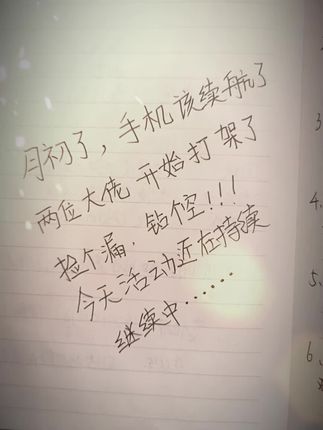 月初了，手机该续航了
两位大佬开始打架了
捡个漏，钻个空!!!
今天活动还在持续
继续中·······
3
4.
5.
6、